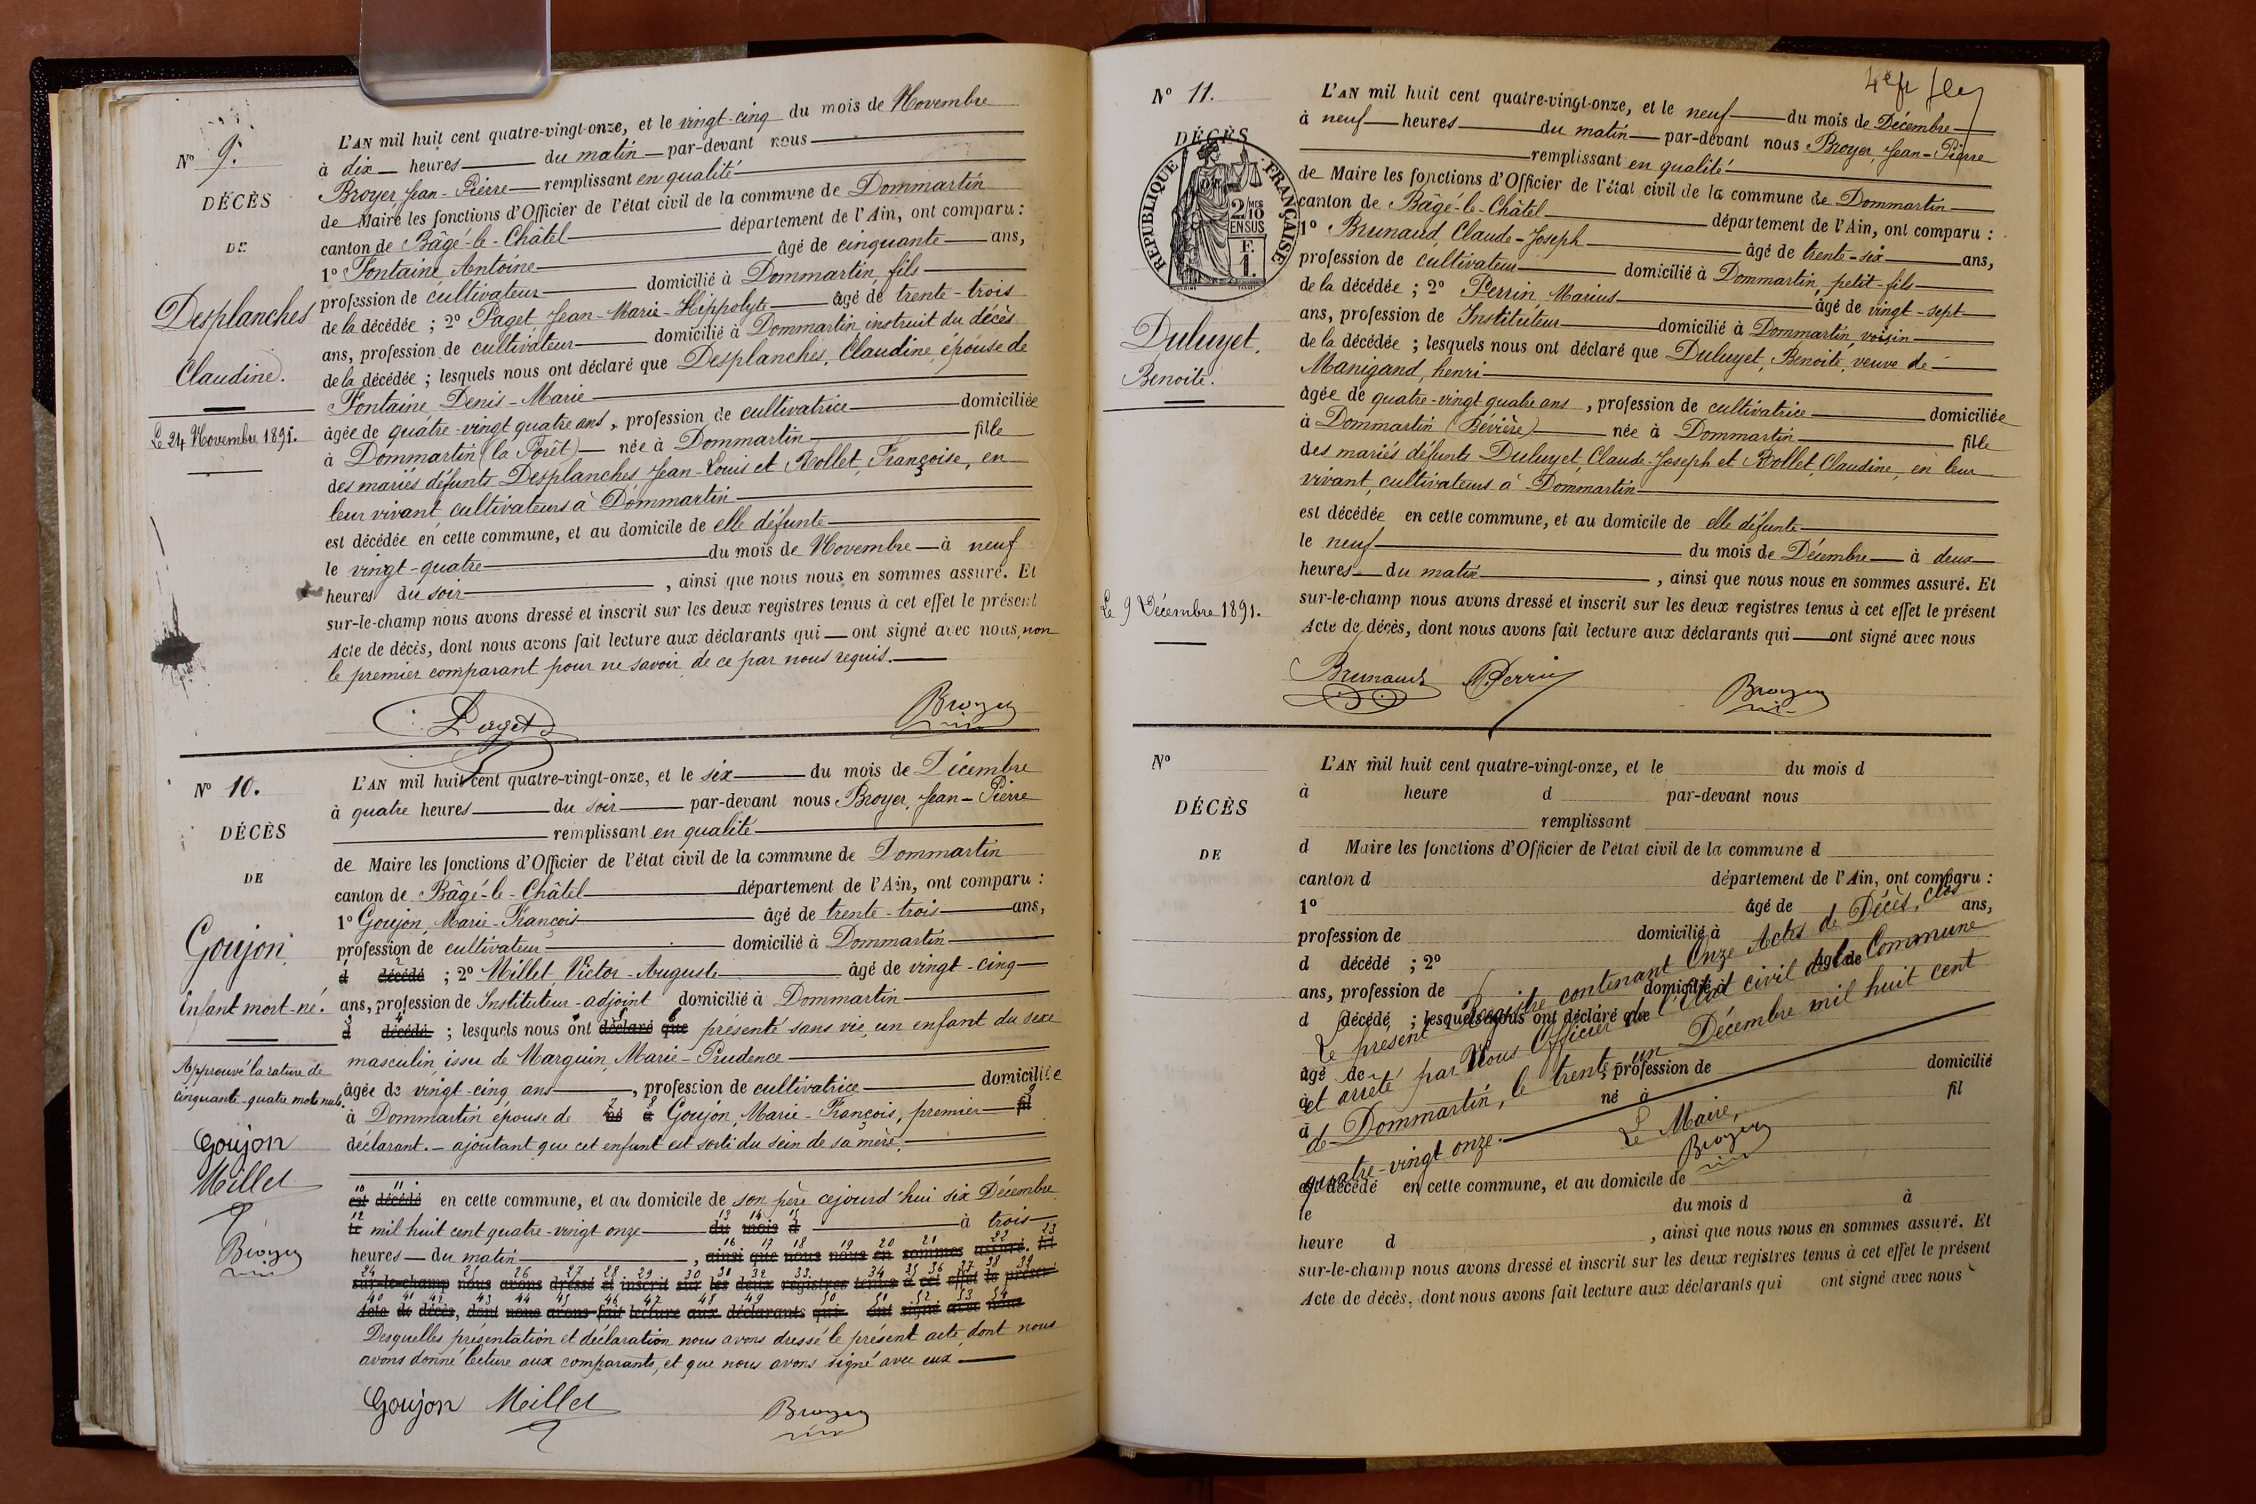 N° 9.
DÉCÈS
DE
Desplanches
Claudine.
Le 24 Novembre 1891.
L'AN mil huit cent quatre-vingt-onze, et le vingt-cinq du mois de Novembre
à dix heures du matin par-devant nous
Broyer, Jean-Pierre remplissant en qualité
de Maire les fonctions d'Officier de l'état civil de la commune de Dommartin
canton de Bâgé-le-Châtel département de l'Ain, ont comparu :
1° Fontaine, Antoine âgé de cinquante ans,
profession de cultivateur domicilié à Dommartin, fils
de la décédée ; 2° Paget, Jean-Marie-Hippolyte âgé de trente-trois
ans, profession de cultivateur domicilié à Dommartin, instruit du décès
de la décédée ; lesquels nous ont déclaré que Desplanches, Claudine, épouse de
Fontaine, Denis-Marie
âgée de quatre-vingt quatre ans, profession de cultivatrice domiciliée
à Dommartin (la Forêt) née à Dommartin fille
des mariés défunts Desplanches, Jean-Louis et Rollet, Françoise, en
leur vivant cultivateurs à Dommartin
est décédée en cette commune, et au domicile de elle défunte
le vingt-quatre du mois de Novembre à neuf
heures du soir, ainsi que nous nous en sommes assuré. Et
sur-le-champ nous avons dressé et inscrit sur les deux registres tenus à cet effet le présent
Acte de décès, dont nous avons fait lecture aux déclarants qui ont signé avec nous, non
le premier comparant pour ne savoir, de ce par nous requis.
Paget Broyer
N° 10.
DÉCÈS
DE
Goujon
Enfant mort-né.
Approuvé la rature de
cinquante-quatre mots nuls.
Goujon
Millet
Broyer
L'AN mil huit cent quatre-vingt-onze, et le six du mois de Décembre
à quatre heures du soir par-devant nous Broyer, Jean-Pierre
remplissant en qualité
de Maire les fonctions d'Officier de l'état civil de la commune de Dommartin
canton de Bâgé-le-Châtel département de l'Ain, ont comparu :
1° Goujon, Marie-François âgé de trente-trois ans,
profession de cultivateur domicilié à Dommartin
d décédé ; 2° Millet, Victor-Auguste âgé de vingt-cinq
ans, profession de Instituteur-adjoint domicilié à Dommartin
d décédé ; lesquels nous ont déclaré que présenté sans vie, un enfant du sexe
masculin, issu de Marguin, Marie-Prudence
âgée de vingt-cinq ans, profession de cultivatrice domiciliée
à Dommartin épouse de né à Goujon, Marie-François, premier fil
déclarant. – ajoutant que cet enfant est sorti du sein de sa mère.
10 11
est décédé en cette commune, et au domicile de son père cejourd'hui six Décembre
12 13 14 15
le mil huit cent quatre-vingt onze du mois d à trois
16 17 18 19 20 21 22 23
heures du matin, ainsi que nous nous en sommes assuré. Et
24 25 26 27 28 29 30 31 32 33 34 35 36 37 38 39
sur-le-champ nous avons dressé et inscrit sur les deux registres tenus à cet effet le présent
40 41 42 43 44 45 46 47 48 49 50 51 52 53 54
Acte de décès, dont nous avons fait lecture aux déclarants qui ont signé avec nous
Desquelles présentation et déclaration nous avons dressé le présent acte dont nous
avons donné lecture aux comparants, et que nous avons signé avec eux
Goujon Millet Broyer
N° 11.
DÉCÈS
RÉPUBLIQUE FRANÇAISE
2/10
EN SUS
Duluyet,
Benoite.
Le 9 Décembre 1891.
L'AN mil huit cent quatre-vingt-onze, et le neuf du mois de Décembre
à neuf heures du matin par-devant nous Broyer, Jean-Pierre
remplissant en qualité
de Maire les fonctions d'Officier de l'état civil de la commune de Dommartin
canton de Bâgé-le-Châtel département de l'Ain, ont comparu :
1° Brunaud, Claude-Joseph âgé de trente-six ans,
profession de cultivateur domicilié à Dommartin, petit-fils
de la décédée ; 2° Perrin, Marius âgé de vingt-sept
ans, profession de Instituteur domicilié à Dommartin, voisin
de la décédée ; lesquels nous ont déclaré que Duluyet, Benoite, veuve de
Manigand, henri
âgée de quatre-vingt quatre ans, profession de cultivatrice domiciliée
à Dommartin (Bévière) née à Dommartin fille
des mariés défunts Duluyet, Claude-Joseph et Rollet, Claudine, en leur
vivant, cultivateurs à Dommartin
est décédée en cette commune, et au domicile de elle défunte
le neuf du mois de Décembre à deux
heures du matin, ainsi que nous nous en sommes assuré. Et
sur-le-champ nous avons dressé et inscrit sur les deux registres tenus à cet effet le présent
Acte de décès, dont nous avons fait lecture aux déclarants qui ont signé avec nous
Brunaud M. Perrin Broyer
N°
DÉCÈS
DE
L'AN mil huit cent quatre-vingt-onze, et le du mois d
à heure d par-devant nous
remplissant
d Maire les fonctions d'Officier de l'état civil de la commune d
canton d département de l'Ain, ont comparu :
1° âgé de ans,
profession de domicilié à
d décédé ; 2° âgé de
ans, profession de domicilié à
d décédé ; lesquels nous ont déclaré que
âgé de , profession de domicilié
à né à fil
d
Le présent Registre contenant Onze Actes de Décès, clos
et arrêté par Nous Officier de l'état civil de la Commune
de Dommartin, le trente-un Décembre mil huit cent
quatre-vingt onze.
Le Maire,
Broyer
est décédé en cette commune, et au domicile de
le du mois d à
heure d , ainsi que nous nous en sommes assuré. Et
sur-le-champ nous avons dressé et inscrit sur les deux registres tenus à cet effet le présent
Acte de décès, dont nous avons fait lecture aux déclarants qui ont signé avec nous